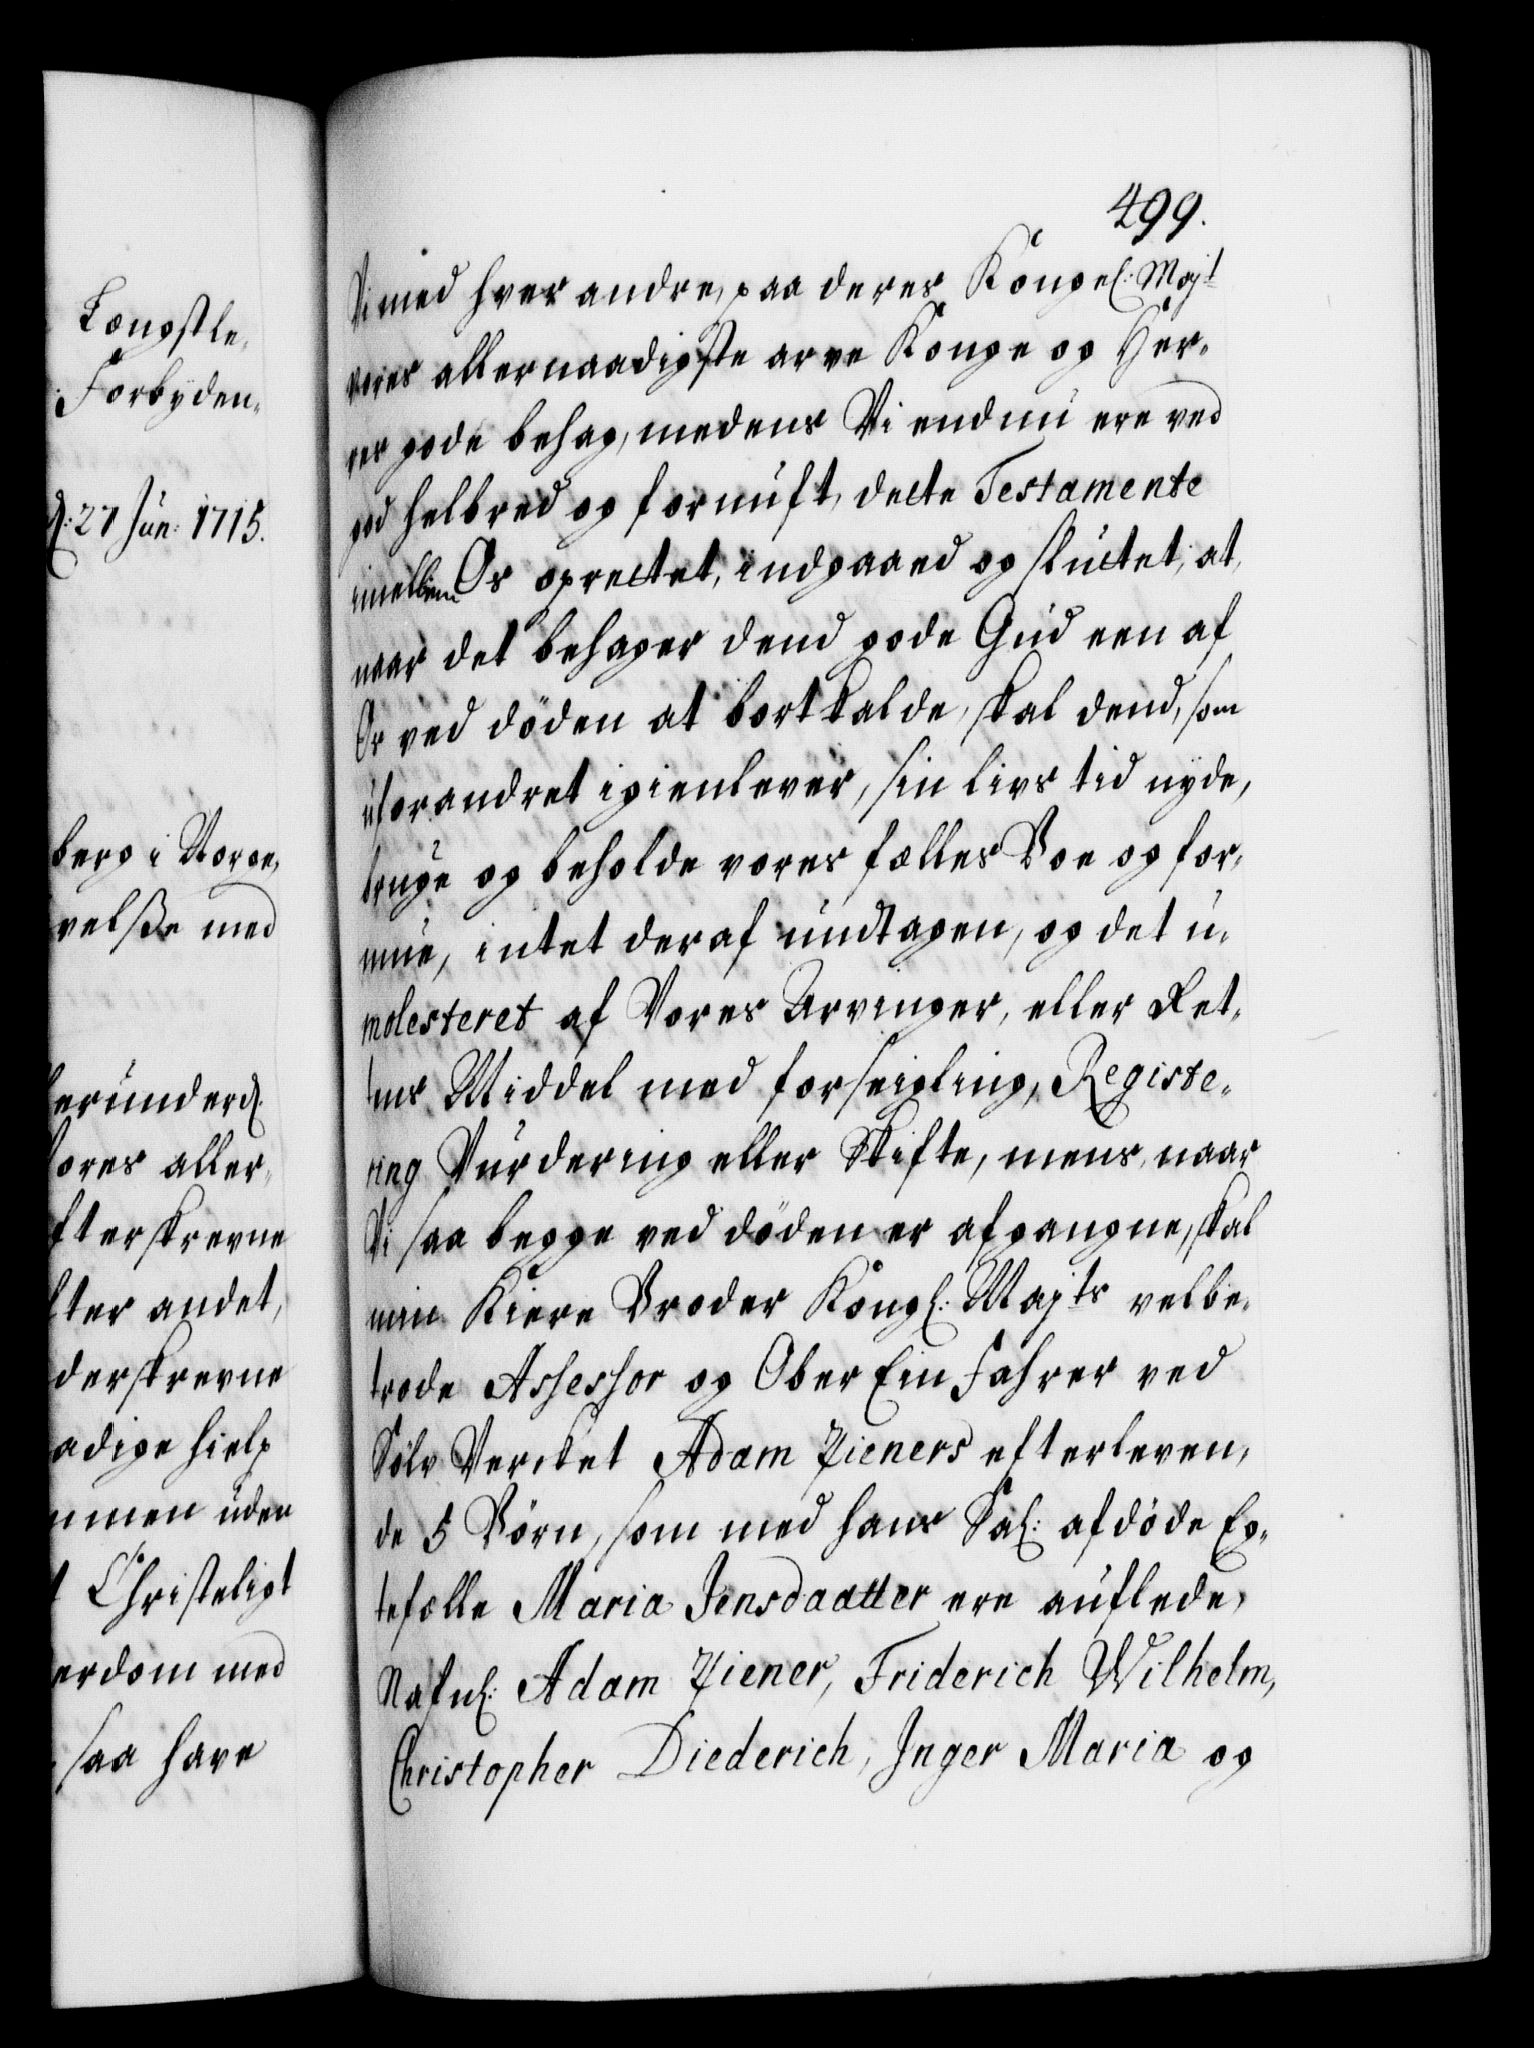 Længstle,
Forbyden,
d: 27 Jun: 1715.
berg i Norge,
velsse med
herunderd:
Vores aller,
fterskrevne
fter andet,
derskrevne
adige hielp
mmen uden
t Christeligt
erdom med
saa have
499.
Vi med hver andre, paa deres Kongel: Majt
vores allernaadigste arve Konge og Her,
res gode behag, medens Vi endnu ere ved
god helbred og fornuft, dette Testamente
imellem Os oprettet, indgaaed og sluttet, at,
naar det behager dend gode Gud een af
Os ved döden at bortkalde, skal dend, som
uforandret igienlever, sin livs tid nyde,
bruge og beholde vores fælles Boe og for,
mue, intet deraf undtagen, og det u,
molesteret af Vores Arvinger, eller Ret,
tens Middel med forseigling, Registe,
ring Vurdering eller Skifte, mens, naar
Vi saa begge ved döden er afgangne, skal
min Kiere Broder Kongl: Majts velbe,
trode Assessor og Ober Ein Fahrer ved
Sölv Vercket Adam Zieners efterleven,
de 5 Börn, som med hans Sal: afdöde Eg,
tefælle Maria Jensdaatter ere auflede,
Nafnl: Adam Ziener, Friderich Wilhelm,
Christopher Diederich, Inger Maria og